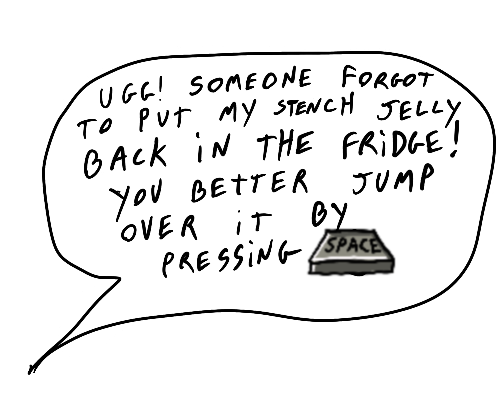 UGG! SOMEONE FORGOT
TO PUT MY STENCH JELLY
BACK iN THE FRiDGE!
YOU BETTER JUMP
OVER iT BY
PRESSiNG SPACE